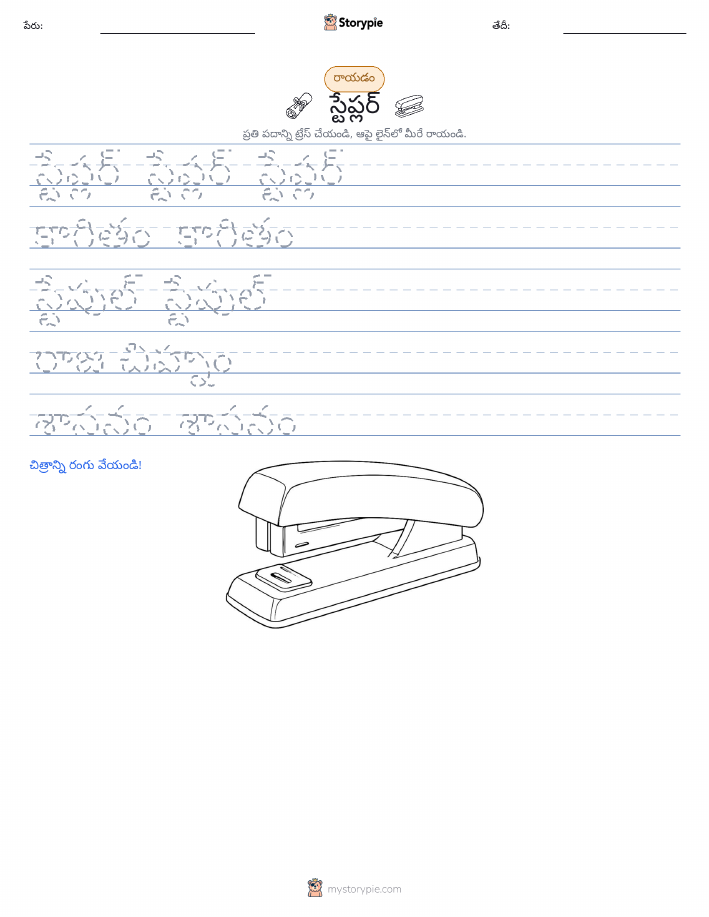 పేరు:
Storypie
తేదీ:
రాయడం
స్టేప్లర్
ప్రతి పదాన్ని ట్రేస్ చేయండి, ఆపై లైన్‌లో మీరే రాయండి.
స్టేప్లర్ స్టేప్లర్ స్టేప్లర్
కాగితం కాగితం
స్టేపుల్ స్టేపుల్
రాజు చిహ్నం
శాసనం శాసనం
చిత్రాన్ని రంగు వేయండి!
mystorypie.com